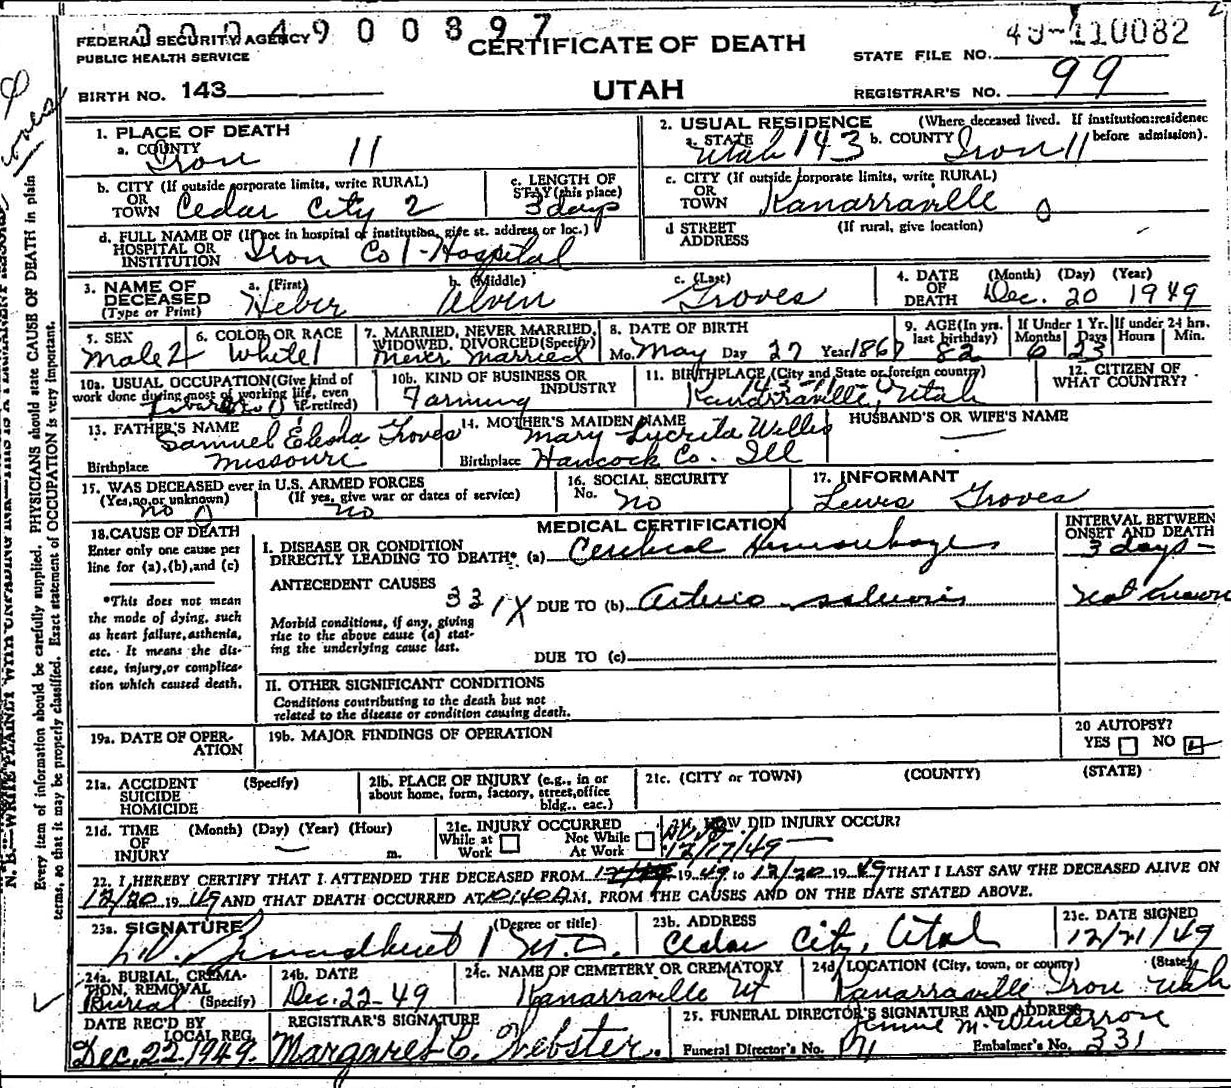 0004900897
FEDERAL SECURITY AGENCY
PUBLIC HEALTH SERVICE
CERTIFICATE OF DEATH
STATE FILE NO. 49-110082
BIRTH NO. 143
UTAH
REGISTRAR'S NO. 99
1. PLACE OF DEATH
a. COUNTY
Iron 11
2. USUAL RESIDENCE (Where deceased lived. If institution: residence before admission).
a. STATE Utah 143 b. COUNTY Iron 11
b. CITY (If outside corporate limits, write RURAL)
OR
TOWN Cedar City 2
c. LENGTH OF
STAY (this place)
3 days
c. CITY (If outside corporate limits, write RURAL)
OR
TOWN Kanarraville 0
d. FULL NAME OF (If not in hospital or institution, give st. address or loc.)
HOSPITAL OR
INSTITUTION Iron Co 1-Hospital
d STREET
ADDRESS
(If rural, give location)
3. NAME OF
DECEASED
(Type or Print)
a. (First)
Heber
b. (Middle)
Alvin
c. (Last)
Groves
4. DATE
OF
DEATH
(Month) (Day) (Year)
Dec. 20 1949
5. SEX
Male 2
6. COLOR OR RACE
White 1
7. MARRIED, NEVER MARRIED,
WIDOWED, DIVORCED (Specify)
Never Married
8. DATE OF BIRTH
Mo. May Day 27 Year 1867
9. AGE (In yrs.
last birthday)
82
If Under 1 Yr.
Months Days
6 23
If under 24 hrs.
Hours Min.
10a. USUAL OCCUPATION (Give kind of
work done during most of working life, even
if retired)
10b. KIND OF BUSINESS OR
INDUSTRY
Farming
11. BIRTHPLACE (City and State or foreign country)
143-11-0
Kanarraville, Utah
12. CITIZEN OF
WHAT COUNTRY?
13. FATHER'S NAME
Samuel Elesha Groves
Birthplace Missouri
14. MOTHER'S MAIDEN NAME
Mary Lucrita Willis
Birthplace Hancock Co. Ill
HUSBAND'S OR WIFE'S NAME
15. WAS DECEASED ever in U.S. ARMED FORCES
(Yes, no, or unknown) (If yes, give war or dates of service)
no 0 no
16. SOCIAL SECURITY
No. no
17. INFORMANT
Lewis Groves
18. CAUSE OF DEATH
Enter only one cause per
line for (a), (b), and (c)
*This does not mean
the mode of dying, such
as heart failure, asthenia,
etc. It means the dis-
ease, injury, or complica-
tion which caused death.
MEDICAL CERTIFICATION
I. DISEASE OR CONDITION
DIRECTLY LEADING TO DEATH* (a) Cerebral Hemorrhage
INTERVAL BETWEEN
ONSET AND DEATH
3 days
ANTECEDENT CAUSES
331X DUE TO (b)
not known
Morbid conditions, if any, giving
rise to the above cause (a) stat-
ing the underlying cause last.
DUE TO (c)
II. OTHER SIGNIFICANT CONDITIONS
Conditions contributing to the death but not
related to the disease or condition causing death.
19a. DATE OF OPER-
ATION
19b. MAJOR FINDINGS OF OPERATION
20 AUTOPSY?
YES NO
21a. ACCIDENT
SUICIDE
HOMICIDE
(Specify)
21b. PLACE OF INJURY (e.g., in or
about home, form, factory, street, office
bldg., eac.)
21c. (CITY or TOWN) (COUNTY) (STATE)
21d. TIME
OF
INJURY
(Month) (Day) (Year) (Hour)
m.
21e. INJURY OCCURRED
While at
Work
Not While
At Work
21f. HOW DID INJURY OCCUR?
12/17/49
22. I HEREBY CERTIFY THAT I ATTENDED THE DECEASED FROM 19 49 to 12/20 19 49 THAT I LAST SAW THE DECEASED ALIVE ON
12/20 19 49 AND THAT DEATH OCCURRED AT M. FROM THE CAUSES AND ON THE DATE STATED ABOVE.
23a. SIGNATURE
(Degree or title)
M.D.
23b. ADDRESS
Cedar City, Utah
23c. DATE SIGNED
12/21/49
24a. BURIAL, CREMA-
TION, REMOVAL
Burial (Specify)
24b. DATE
Dec. 22-49
24c. NAME OF CEMETERY OR CREMATORY
Kanarraville Ut
24d. LOCATION (City, town, or county) (State)
Kanarraville Iron Utah
DATE REC'D BY
LOCAL REG.
Dec. 22 1949.
REGISTRAR'S SIGNATURE
Margaret C. Webster.
25. FUNERAL DIRECTOR'S SIGNATURE AND ADDRESS
Funeral Director's No. Embalmer's No. 331
N. B.—WRITE PLAINLY WITH UNFADING INK—THIS IS A PERMANENT RECORD
Every item of information should be carefully supplied. PHYSICIANS should state CAUSE OF DEATH in plain
terms, so that it may be properly classified. Exact statement of OCCUPATION is very important.